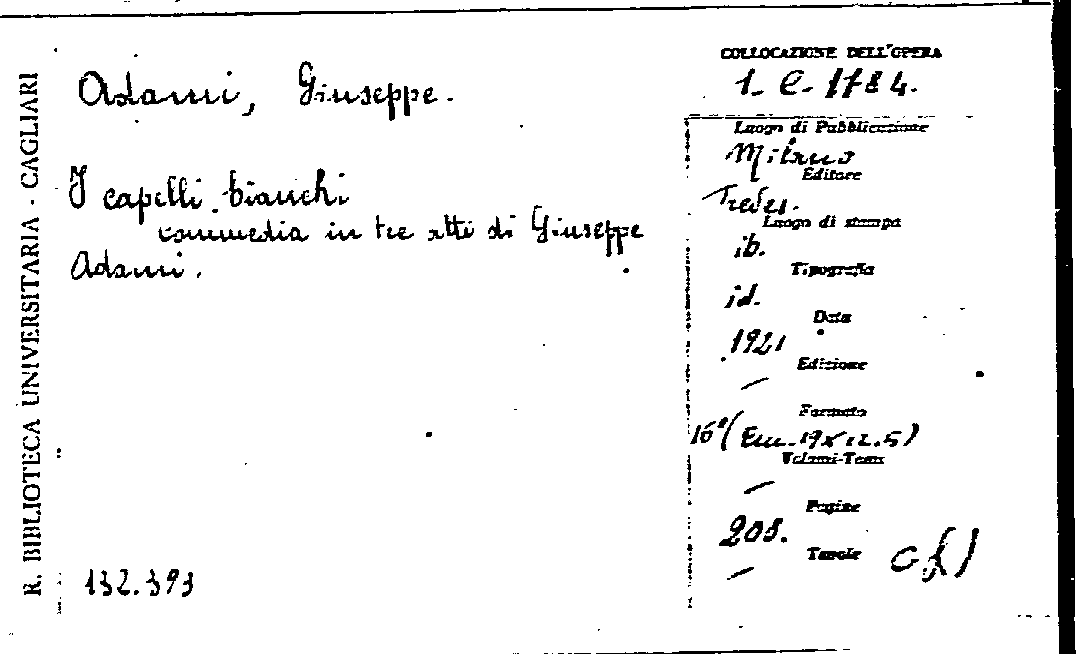 R. BIBLIOTECA UNIVERSITARIA - CAGLIARI
Adami, Giuseppe.
I capelli bianchi
commedia in tre atti di Giuseppe
Adami.
132.393
COLLOCAZIONE DELL'OPERA
1. C. 1784.
Luogo di Pubblicazione
Milano
Editore
Treves.
Luogo di stampa
ib.
Tipografia
id.
Data
1921
Edizione
—
Formato
16° (Cm. 19x12.5)
Volumi-Tomi
—
Pagine
208.
Tavole
—